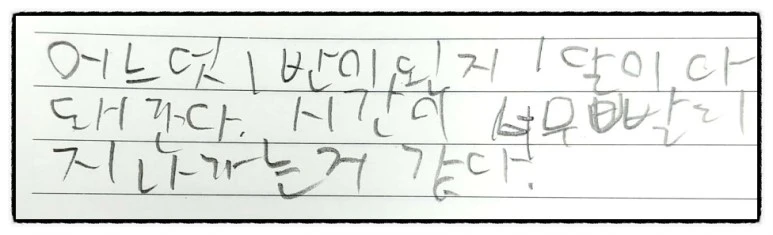 어느덧 1반이 된지 1달이 다
돼 간다. 시간이 너무 빨리
지나가는거 같다.